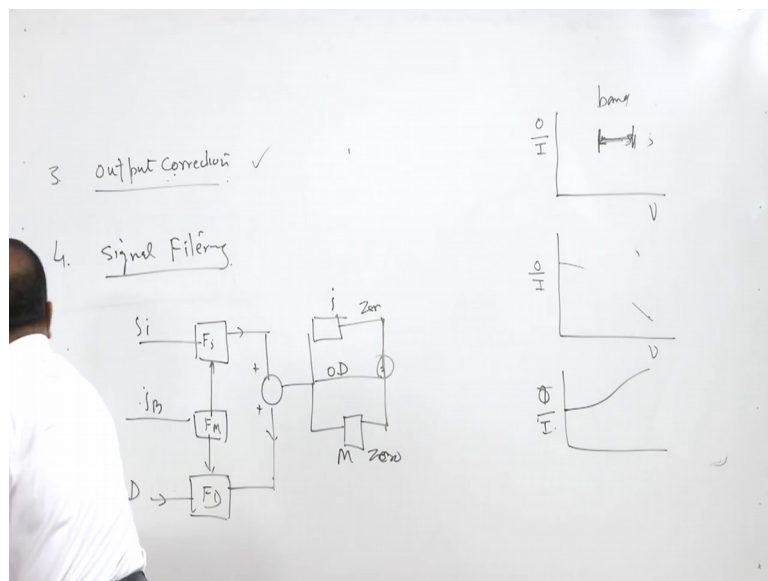 3. output correction ✓
4. Signal Filering
Si
Fs
FM
D
FD
+
+
i
Zero
OD
M Zero
O
I
O
I
I